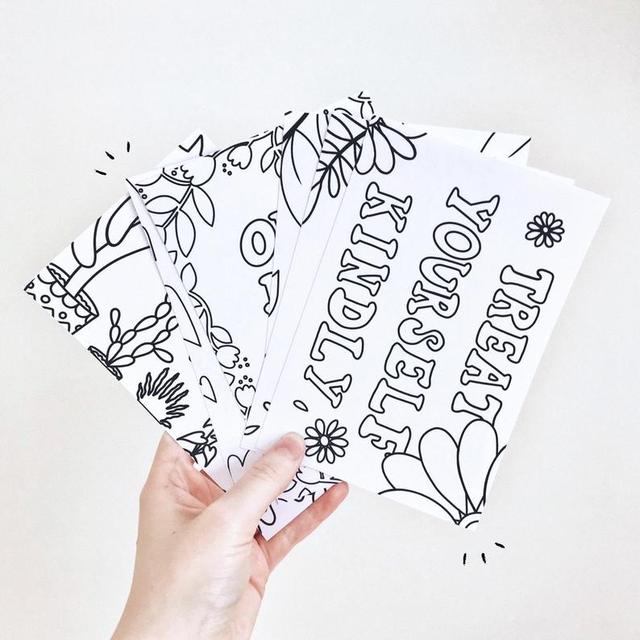 TREAT
YOURSELF
KINDLY